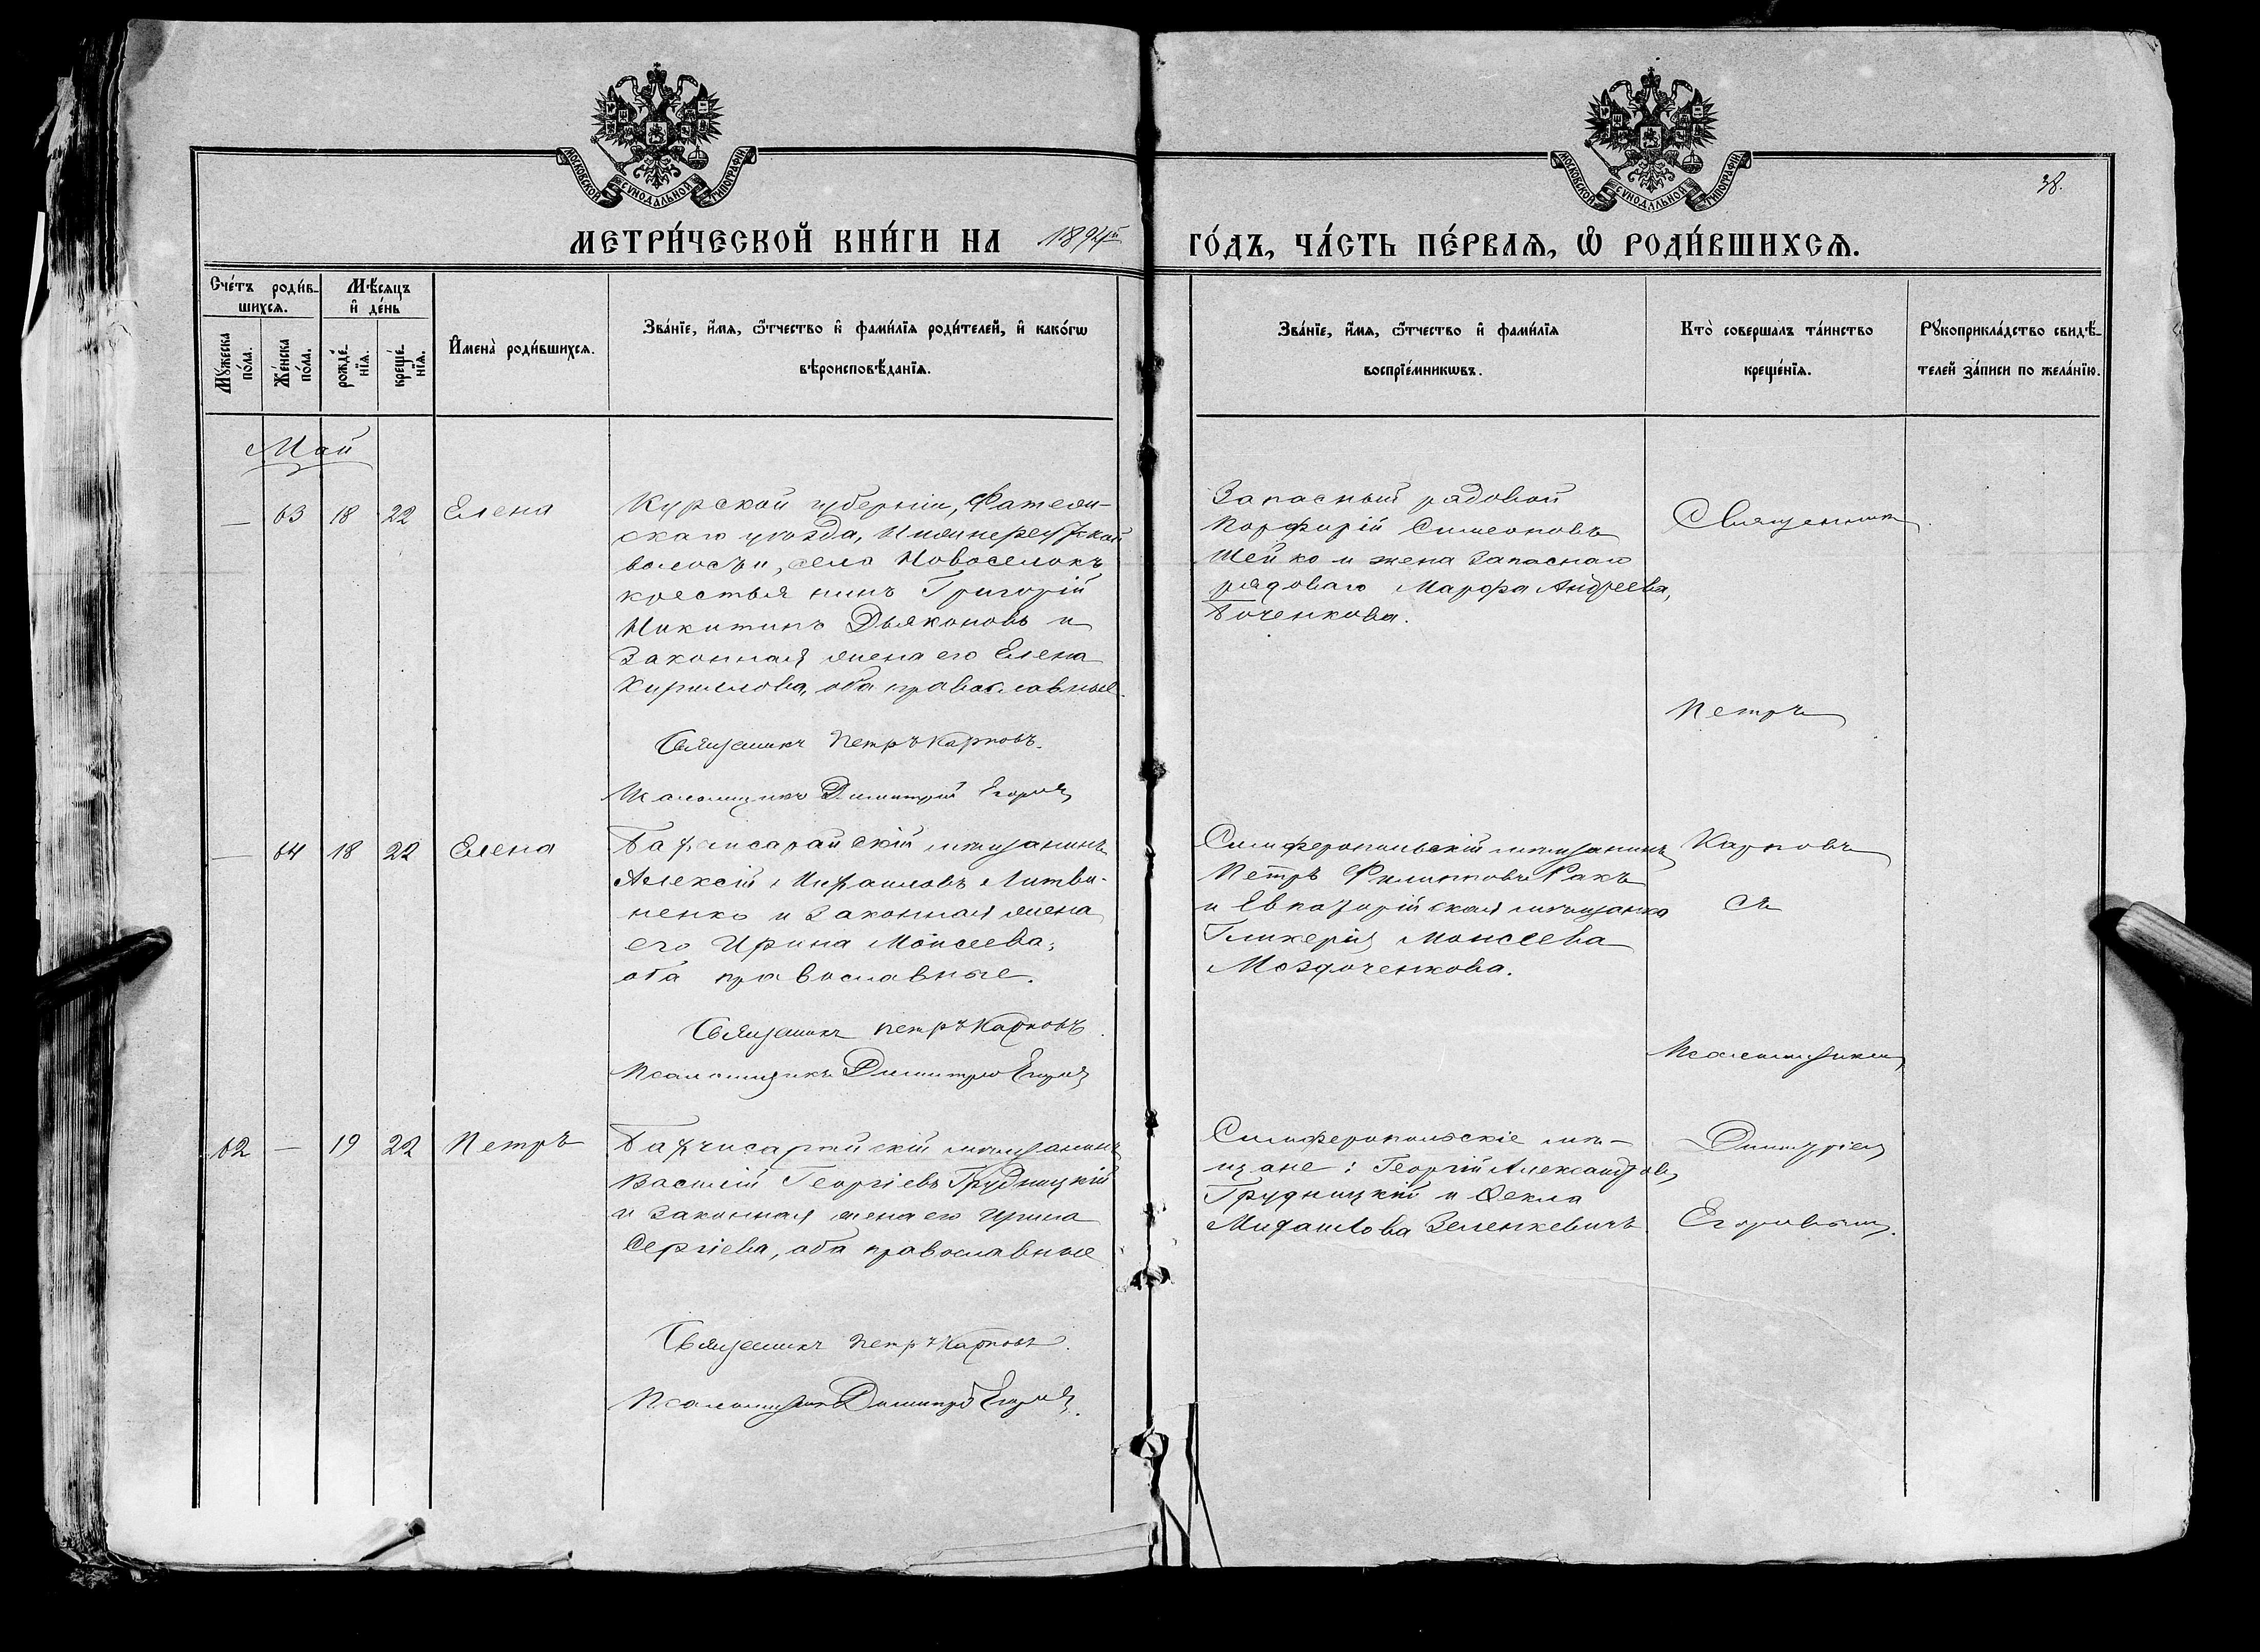 МОСКОВСКОЙ СѴНОДАЛЬНОЙ ТИПОГРАФІИ
МОСКОВСКОЙ СѴНОДАЛЬНОЙ ТИПОГРАФІИ
38.
МЕТРИ́ЧЕСКОЙ КНИ́ГИ НА 1894й ГО́ДЪ, ЧА́СТЬ ПЕ́РВАЯ, Ѡ҆ РОДИ́ВШИХСЯ.
Сче́тъ роди́в-
шихся.
Мѣ́сяцъ
и҆ де́нь
Мꙋ́жеска
по́ла.
Же́нска
по́ла.
рожде́-
нїѧ.
креще́-
нїѧ.
И҆мена̀ роди́вшихсѧ.
Зва́нїе, и҆́мѧ, ѻ҆́тчество и҆ фами́лїѧ роди́телей, и҆ како́гѡ
вѣроисповѣ́данїѧ.
Зва́нїе, и҆́мѧ, ѻ҆́тчество и҆ фами́лїѧ
воспрїе́мникѡвъ.
Кто̀ соверша́лъ та́инство
креще́нїѧ.
Рꙋкоприкла́дство свидѣ́-
телей за́писи по жела́нїю.
Май
— 63 18 22 Елена
Курской губерніи, Фатеж-
скаго уѣзда,
волости, села Новоселокъ
крестьянинъ Григорій
Никитинъ Дьяконовъ и
законная жена его Елена
Кириллова, оба православные.
Священникъ Петръ Карповъ.
Псаломщикъ Димитрій Егоровъ
Запасный рядовой
Порфирій Симеоновъ
Шейко и жена запаснаго
рядоваго Марфа Андреева
Боченкова.
Священникъ
Петръ
Карповъ
съ
Псаломщикомъ
Димитріемъ
Егоровымъ.
— 64 18 22 Елена
Бахчисарайскій мѣщанинъ
Алексій Михаиловъ Литви-
ненко и законная жена
его Ирина Моисеева;
оба православные.
Священникъ Петръ Карповъ.
Псаломщикъ Димитрій Егоровъ
Симферопольскій мѣщанинъ
Петръ Филипповъ Ракъ
и Евпаторійская мѣщанка
Гликерія Моисеева
62 — 19 22 Петръ
Бахчисарайскій мѣщанинъ
Василій Георгіевъ Грудницкій
и законная жена его Ирина
Сергіева, оба православные
Священникъ Петръ Карповъ.
Псаломщикъ Димитрій Егоровъ.
Симферопольскіе мѣ-
щане: Георгій Александровъ
Грудницкій и Ѳекла
Михаилова Зеленкевичъ.